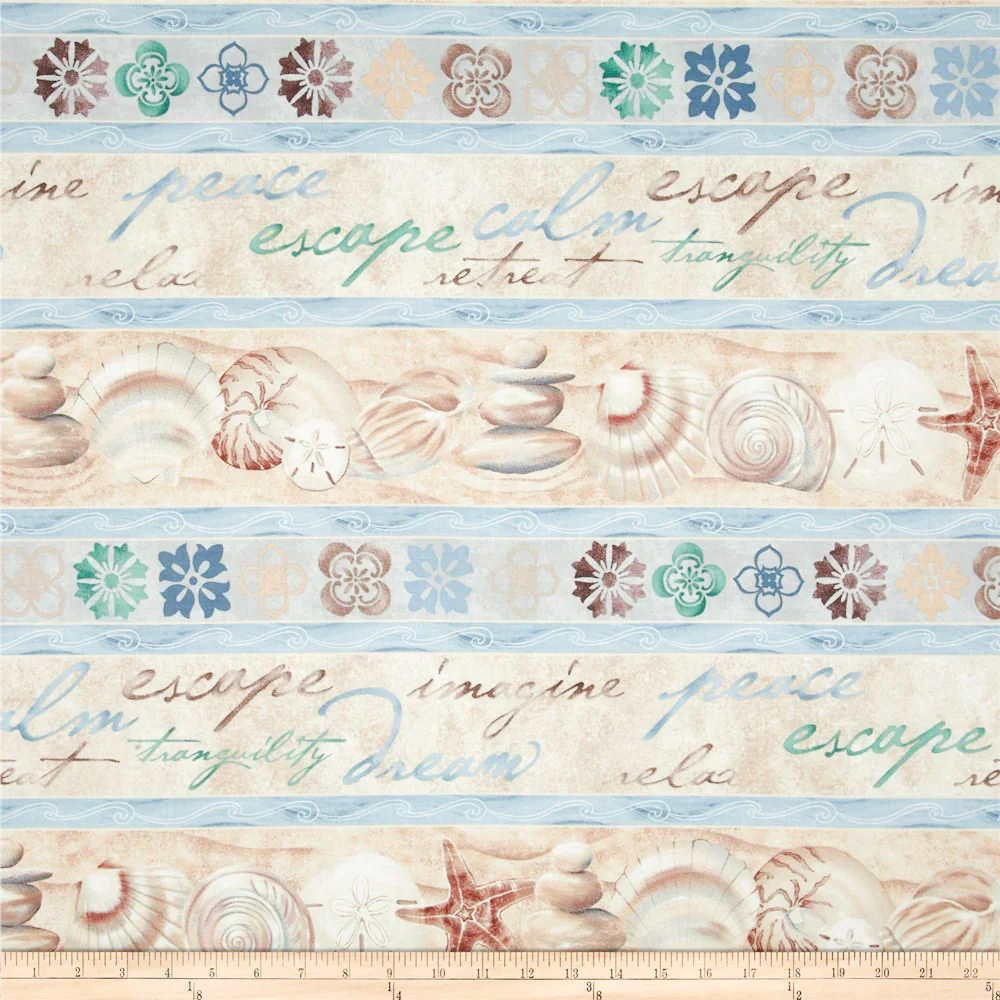 ine peace escape im
escape calm
relax retreat tranquility drea
escape imagine peace
alm escape
tranquility dream
reat relax re
1 2 3 4 5 6 7 8 9 10 11 12 13 14 15 16 17 18 19 20 21 22
1/8 1/4 3/8 1/2 5